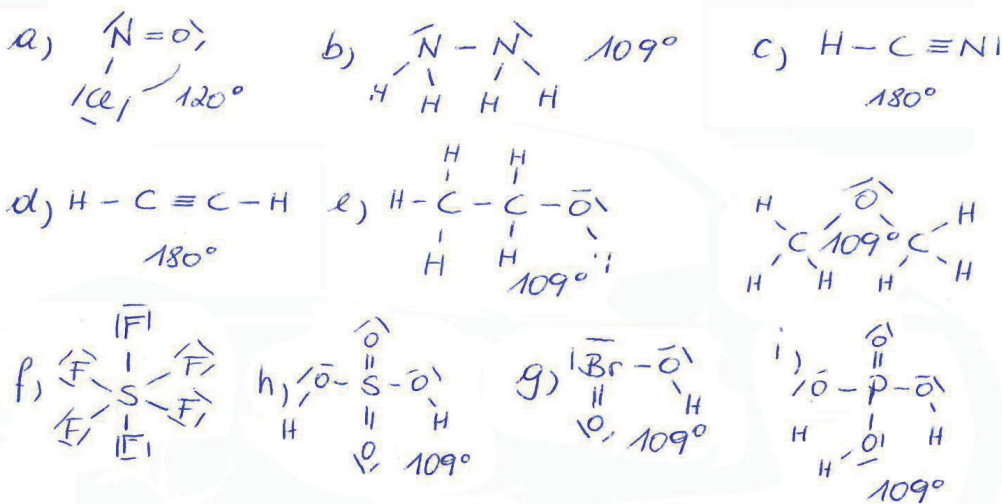 a) N = O 120° Cl
b) N - N 109° H H H H
c) H - C ≡ N| 180°
d) H - C ≡ C - H 180°
e) H - C - C - O H H H H 109°
O H C 109° C H H H H H
f) F F F S F F F
h) O - S - O O O H H 109°
g) Br - O O H 109°
i) O - P - O O O H H H 109°